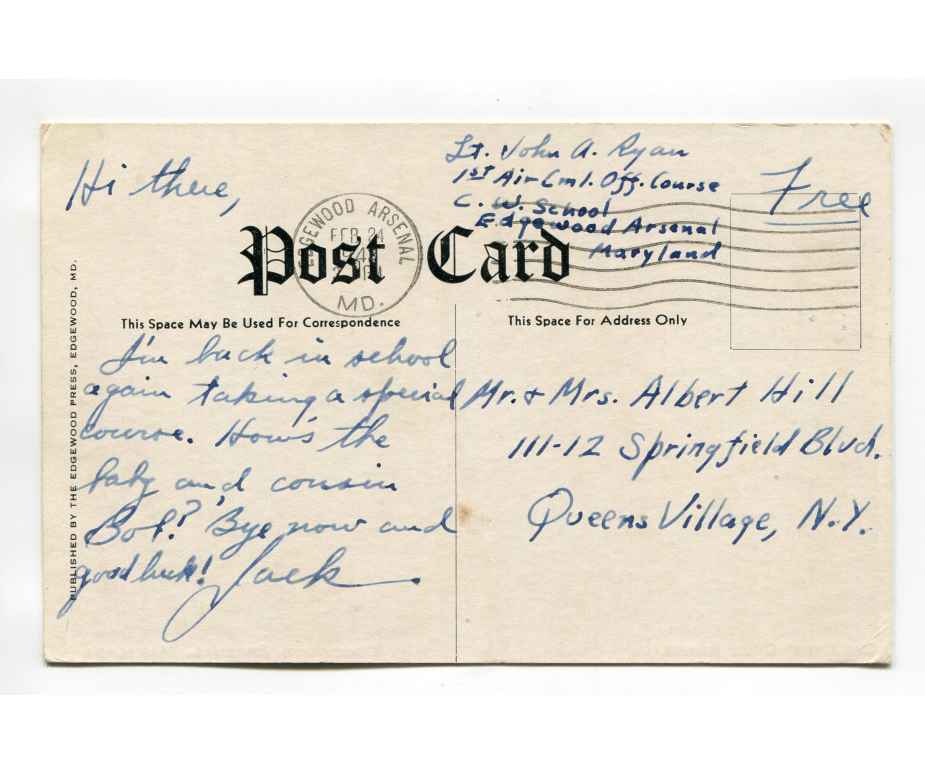 Hi there,
Lt. John A. Ryan
1st Air Cml. Off. Course
C. W. School
Edgewood Arsenal
Maryland
Free
EDGEWOOD ARSENAL
FEB 24
MD.
Post Card
This Space May Be Used For Correspondence
This Space For Address Only
I'm back in school
again taking a special
course. How's the
baby and cousin
Bob? 'Bye now and
good luck! Jack
Mr. & Mrs. Albert Hill
111-12 Springfield Blvd.
Queens Village, N.Y.
PUBLISHED BY THE EDGEWOOD PRESS, EDGEWOOD, MD.